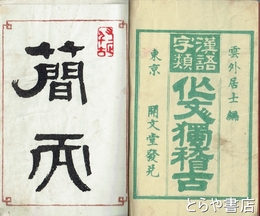 雲外居士編
漢語
字類
作文獨稽古
東京 開文堂發兌
簡而
とらや書店